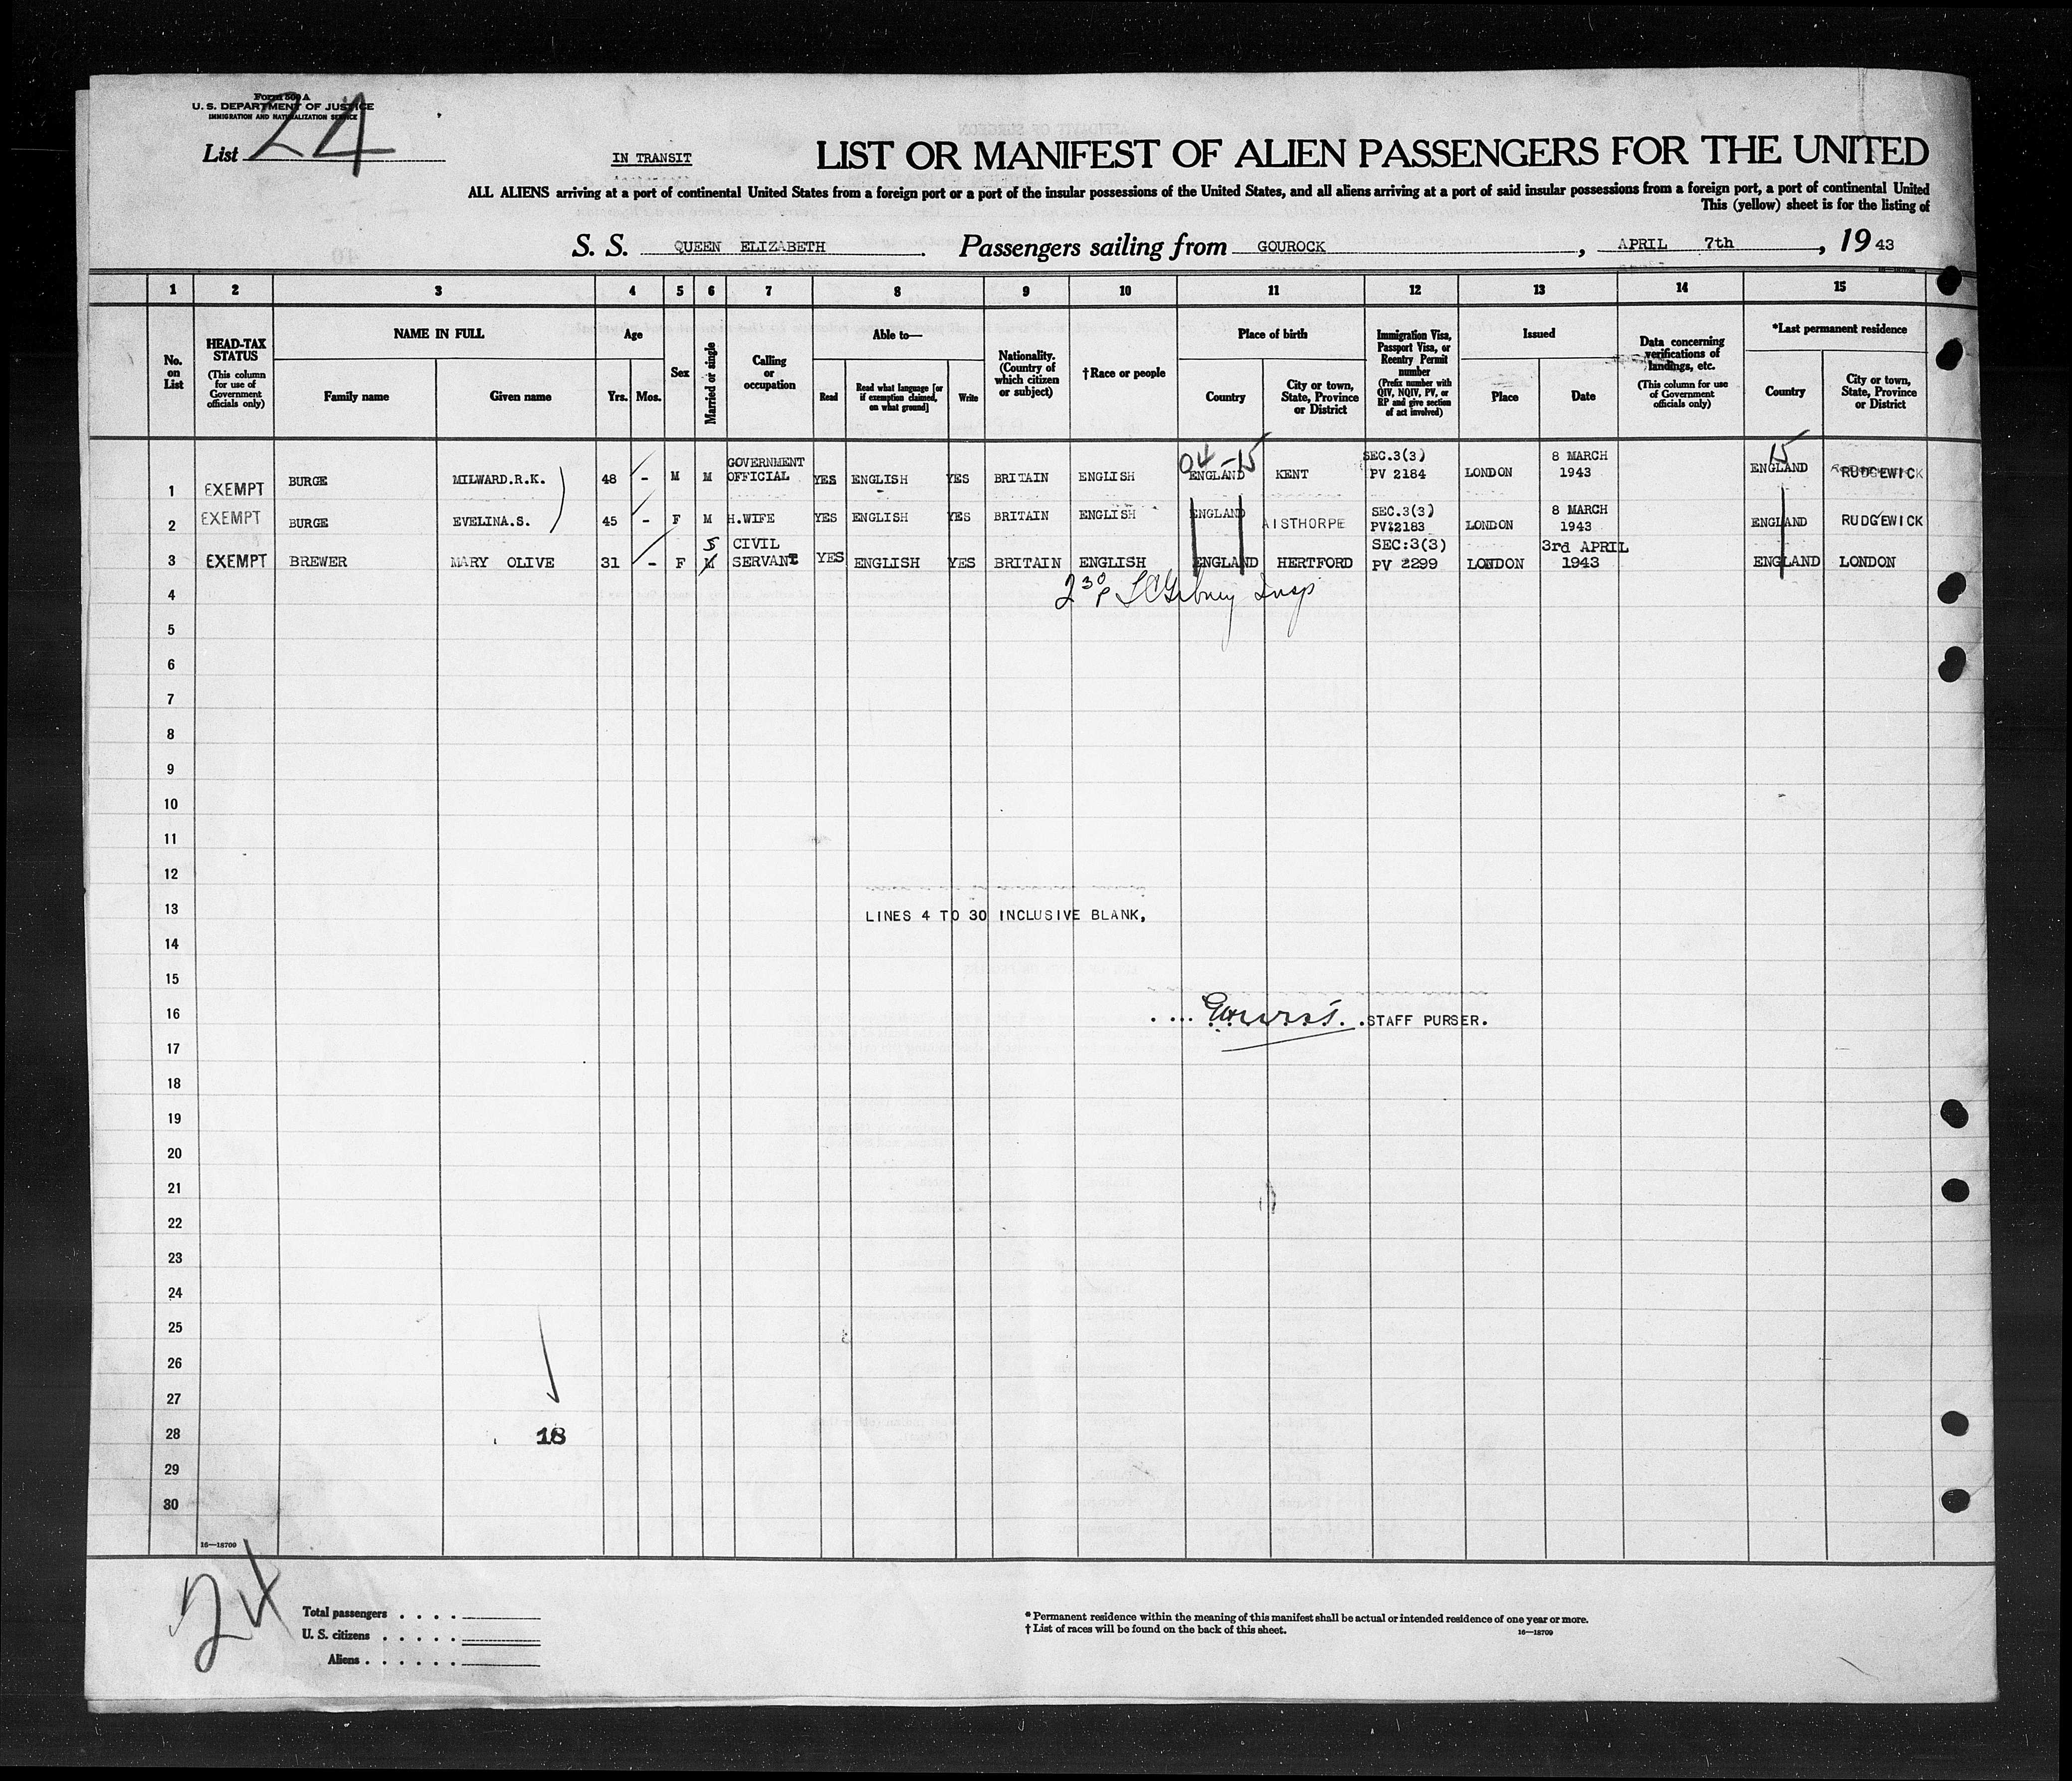 Form 500 A
U. S. DEPARTMENT OF JUSTICE
IMMIGRATION AND NATURALIZATION SERVICE
List 24
IN TRANSIT
LIST OR MANIFEST OF ALIEN PASSENGERS FOR THE UNITED
ALL ALIENS arriving at a port of continental United States from a foreign port or a port of the insular possessions of the United States, and all aliens arriving at a port of said insular possessions from a foreign port, a port of continental United
This (yellow) sheet is for the listing of
S. S. QUEEN ELIZABETH Passengers sailing from GOUROCK, APRIL 7th, 19 43
1 2 3 4 5 6 7 8 9 10 11 12 13 14 15
No. on List
HEAD-TAX STATUS (This column for use of Government officials only)
NAME IN FULL
Family name Given name
Age
Yrs. Mos.
Sex
Married or single
Calling or occupation
Able to—
Read
Read what language [or if exemption claimed, on what ground]
Write
Nationality. (Country of which citizen or subject)
†Race or people
Place of birth
Country
City or town, State, Province or District
Immigration Visa, Passport Visa, or Reentry Permit number (Prefix number with QIV, NQIV, PV, or RP and give section of act involved)
Issued
Place Date
Data concerning verifications of landings, etc. (This column for use of Government officials only)
*Last permanent residence
Country
City or town, State, Province or District
04-15 15
1 EXEMPT BURGE MILWARD.R.K. 48 - M M GOVERNMENT OFFICIAL YES ENGLISH YES BRITAIN ENGLISH ENGLAND KENT SEC.3(3) PV 2184 LONDON 8 MARCH 1943 ENGLAND RUDGEWICK
2 EXEMPT BURGE EVELINA.S. 45 - F M H.WIFE YES ENGLISH YES BRITAIN ENGLISH ENGLAND AISTHORPE SEC.3(3) PV:2183 LONDON 8 MARCH 1943 ENGLAND RUDGEWICK
3 EXEMPT BREWER MARY OLIVE 31 - F M S CIVIL SERVANT YES ENGLISH YES BRITAIN ENGLISH ENGLAND HERTFORD SEC:3(3) PV 2299 LONDON 3rd APRIL 1943 ENGLAND LONDON
4
5
6
7
8
9
10
11
12
13 LINES 4 TO 30 INCLUSIVE BLANK,
14
15
16 STAFF PURSER.
17
18
19
20
21
22
23
24
25
26
27
28 18
29
30
16—18709
24
Total passengers . . . .
U. S. citizens . . . . .
Aliens . . . . . .
* Permanent residence within the meaning of this manifest shall be actual or intended residence of one year or more.
† List of races will be found on the back of this sheet.
16—18709